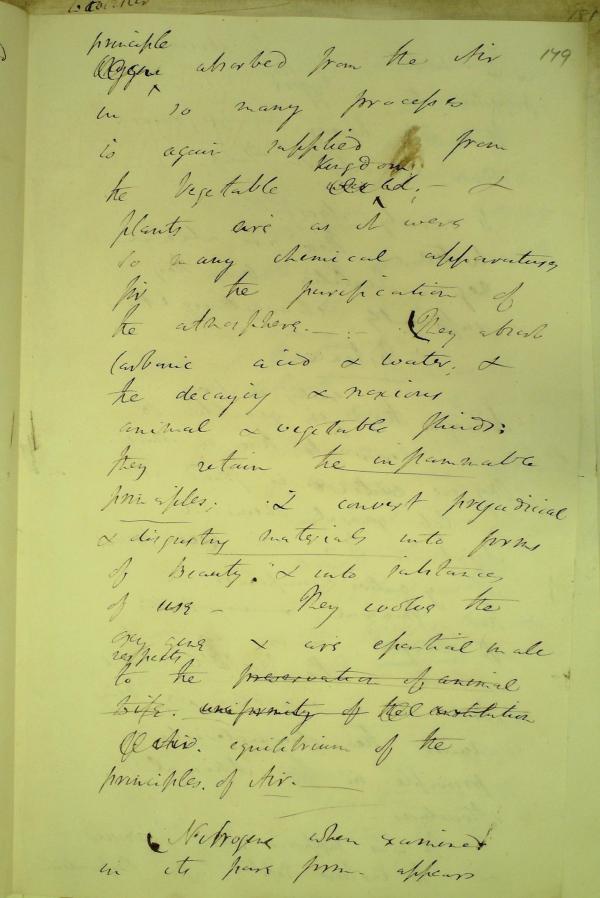 149
principle
absorbed from the Air
in so many processes
is again supplied from
Kingdom;
the Vegetable — &
plants are as it were
so many chemical apparatuses
for the purification of
the atmosphere. — They absorb
Carbonic acid & water; &
the decaying & noxious
animal & vegetable fluids;
they retain the inflammable
principles; & convert prejudicial
& disgusting materials into forms
of Beauty. & into substances
of use — They evolve the
oxygene & are essential in all
respects
to the preservation of animal
life. uniformity of the constitution
equilibrium of the
principles of Air. —
Nitrogene when examined
in its pure form appears